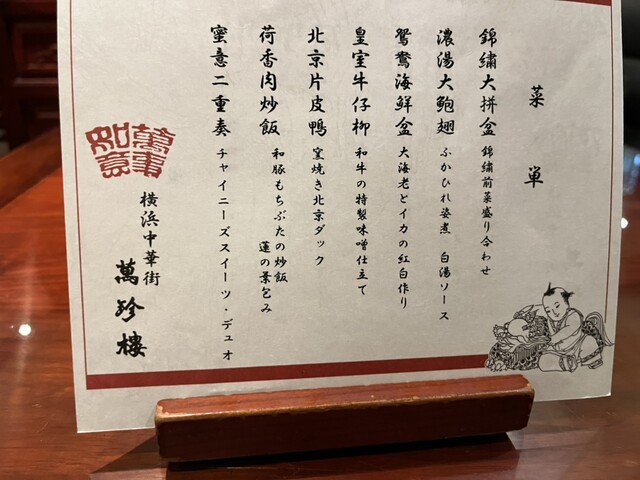 菜単
錦繍大拼盆 錦繍前菜盛り合わせ
濃湯大鮑翅 ふかひれ姿煮 白湯ソース
鴛鴦海鮮盆 大海老とイカの紅白作り
皇室牛仔柳 和牛の特製味噌仕立て
北京片皮鴨 窯焼き北京ダック
荷香肉炒飯 和豚もちぶたの炒飯
蓮の葉包み
蜜意二重奏 チャイニーズスイーツ・デュオ
萬事
如意
横浜中華街
萬珍樓